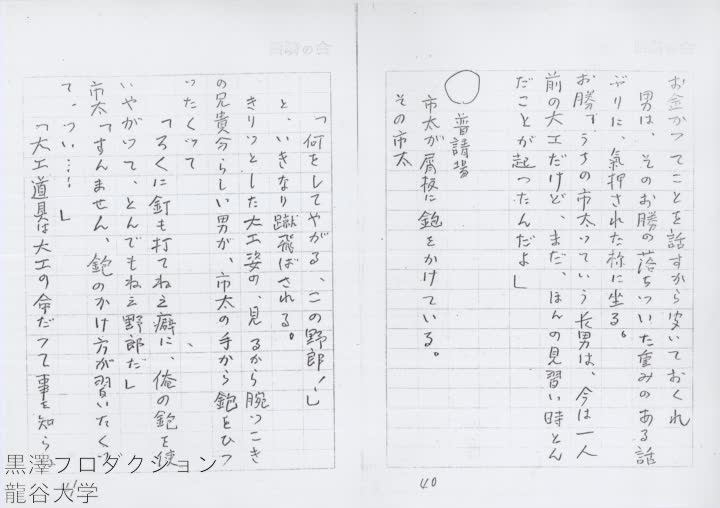 お金がってことを話すから安いておくれ
男は、そのお勝の落ちついた重みのある話
ぶりに、氣押された様に坐る。
お勝「うちの市太っていう長男は、今は一人
前の大工だけど、まだ、ほんの見習い時とん
だことが起ったんだよ」
○ 普請場
市太が屑板に鉋をかけている。
その市太
「何をしてやがる、この野郎！」
と、いきなり蹴飛ばされる。
きりっとした大工姿の、見るから腕っこき
の兄貴分らしい男が、市太の手から鉋をひっ
ったくって
「ろくに釘も打てねえ癖に、俺の鉋を使
いやがって、とんでもねえ野郎だ」
市太「すんません、鉋のかけ方が習いたくっ
て、つい……」
「大工道具は大工の命だって事を知ら
40
黒澤プロダクション
龍谷大学